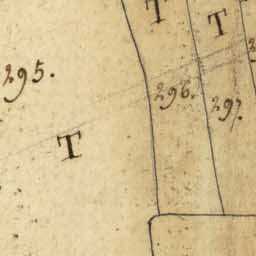 T
T
295.
296.
297.
T